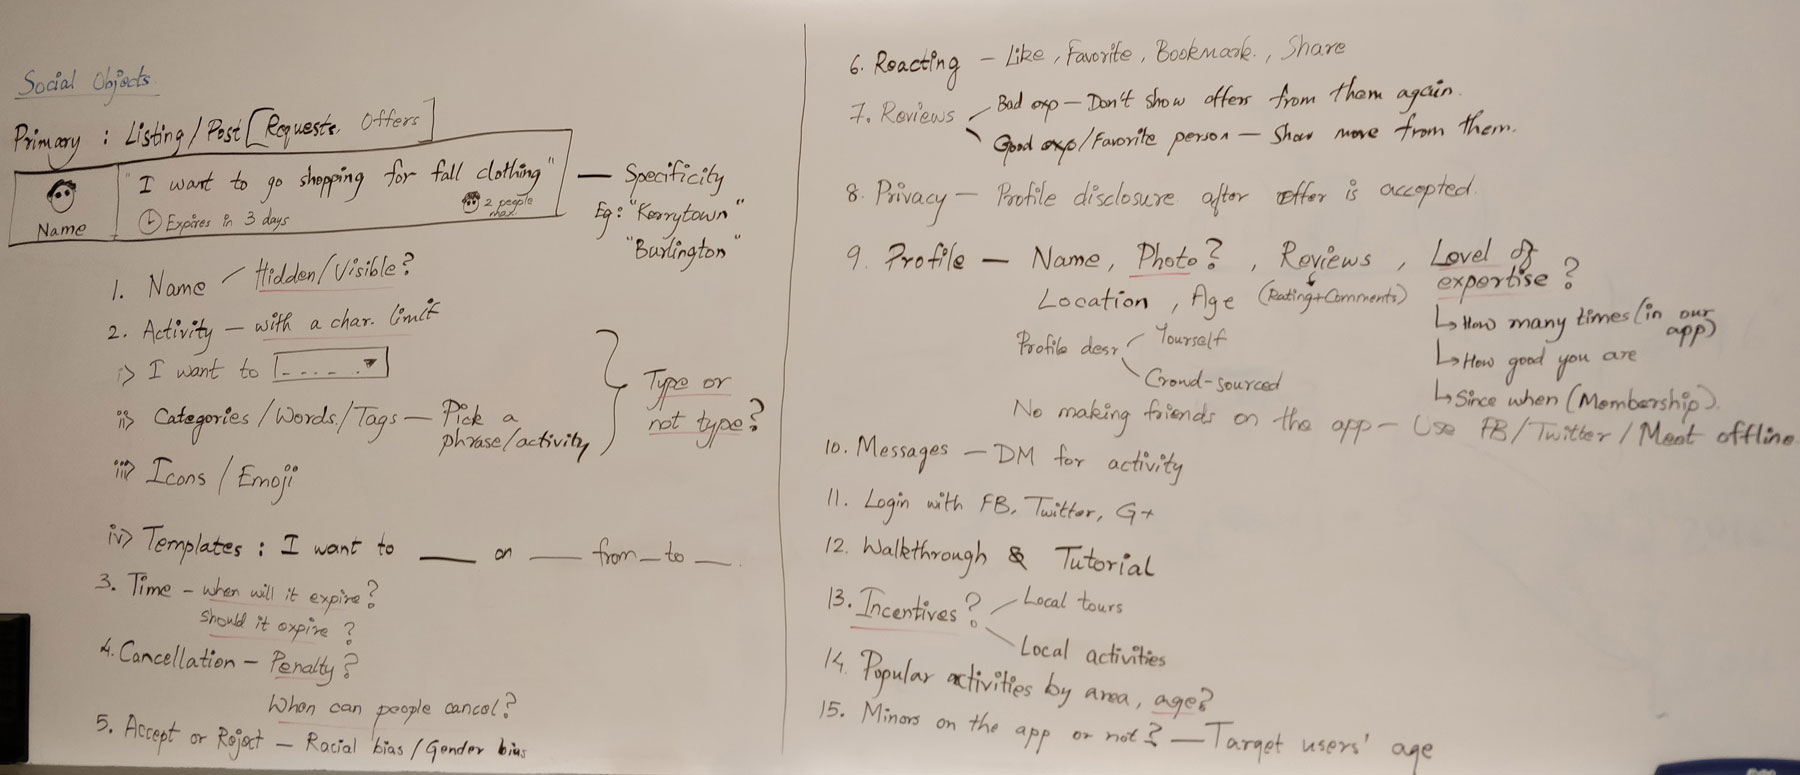 Social Objects
Primary : Listing/Post [Requests, Offers]
"I want to go shopping for fall clothing"
Name
Expires in 3 days
2 people max.
— Specificity
Eg: "Kerrytown"
"Burlington"
1. Name / Hidden/Visible?
2. Activity — with a char. limit
i> I want to
ii> Categories/Words/Tags — Pick a
phrase/activity
iii> Icons/Emoji
Type or
not type?
iv> Templates : I want to ___ on ___ from _ to __.
3. Time - when will it expire?
should it expire?
4. Cancellation - Penalty?
When can people cancel?
5. Accept or Reject - Racial bias/Gender bias
6. Reacting - Like, Favorite, Bookmark, Share
7. Reviews
Bad exp - Don't show offers from them again.
Good exp/Favorite person - Show more from them.
8. Privacy - Profile disclosure after offer is accepted.
9. Profile - Name, Photo?, Reviews, Level of
expertise?
Location, Age (Rating+Comments)
How many times (in our
app)
How good you are
Since when (Membership).
Profile desr
Yourself
Crowd-sourced
No making friends on the app - Use FB/Twitter/Meet offline
10. Messages - DM for activity
11. Login with FB, Twitter, G+
12. Walkthrough & Tutorial
13. Incentives?
Local tours
Local activities
14. Popular activities by area, age?
15. Minors on the app or not? - Target users' age